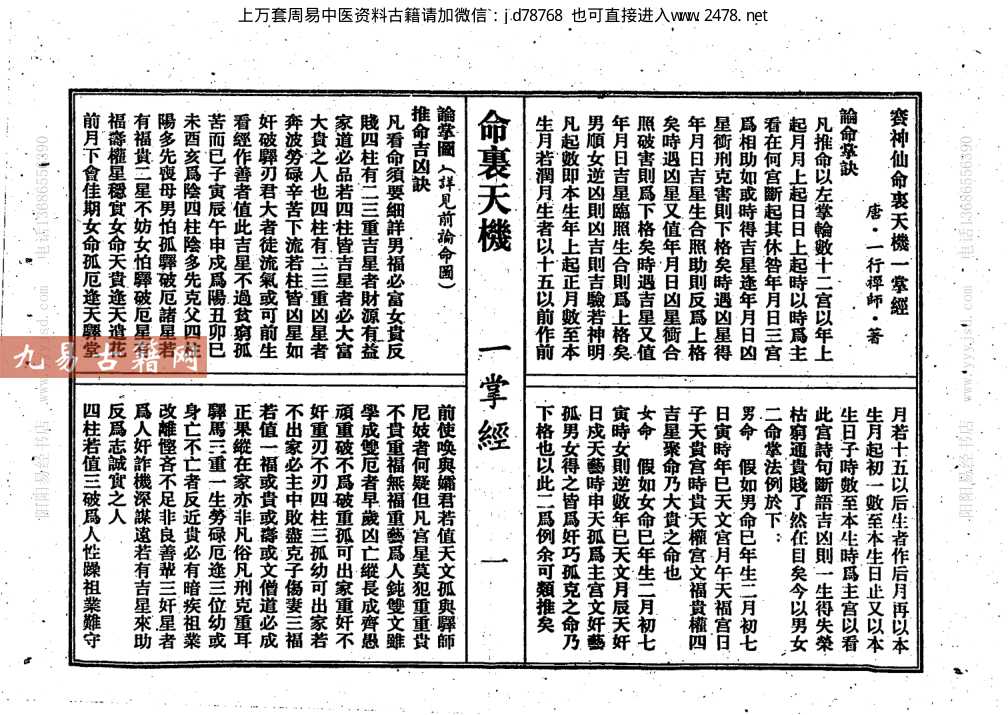 上万套周易中医资料古籍请加微信：j.d78768 也可直接进入www.2478.net
袁神仙命裏天機一掌經
唐·一行禪師·著
論命掌訣
凡推命以左掌輪數十二宫以年上
起月月上起日日上起時以時爲主
看在何宫斷起其休咎年月日三宫
爲相助如或時得吉星逢年月日凶
星衝刑克害則下格矣時遇凶星得
年月日吉星生合照助則反爲上格
矣時遇凶星又值年月日凶星衝合
照破害則爲下格矣時遇吉星又值
年月日吉星臨照生合則爲上格矣
男順女逆凶則凶吉則吉驗若神明
凡起數即本生年上起正月數至本
生月若潤月生者以十五以前作前
月若十五以后生者作后月再以本
生月起初一數至本生日止又以本
生日子時數至本生時爲主宫以看
此宫詩句斷語吉凶則一生得失榮
枯窮通貴賤了然在目矣今以男女
二命掌法例於下：
男命 假如男命巳年生二月初七
日寅時年巳天文宫月午天福宫日
子天貴宫時貴天權宫文福貴權四
吉星聚命乃大貴之命也
女命 假如女命巳年生二月初七
寅時女則逆數年巳天文月辰天奸
日戌天藝時申天孤爲主宫文奸藝
孤男女得之皆爲奸巧孤克之命乃
下格也以此二爲例余可類推矣
命裏天機 一掌經
一
論掌圖（詳見前論命圖）
推命吉凶訣
凡看命須要細詳男福必富女貴反
賤四柱有二三重吉星者財源有益
家道必品若四柱皆吉星者必大富
大貴之人也四柱有二三重凶星者
奔波勞碌辛苦下流若柱皆凶星如
奸破驛刃君大者徒流氣或可前生
看經作善者值此吉星不過貧窮孤
苦而已子寅辰午申戌爲陽丑卯巳
未酉亥爲陰四柱陰多先克父四柱
陽多先喪母男怕孤驛破厄諸星若
有福貴二星不妨女怕驛破厄星有
福壽權星穩實女命天貴逢天遺花
前月下會佳期女命孤厄逢天驛堂
前使唤與孀君若值天文孤與驛師
尼妓者何疑但凡宫星莫犯重重貴
不貴重福無福重藝爲人鈍雙文雖
學成雙厄者早歲凶亡縱長成齊愚
頑重破不爲破重孤可出家重奸不
奸重刃不刃四柱三孤幼可出家若
不出家必主中敗盡克子傷妻三福
若值一福或貴或壽或文僧道必成
正果縱在家亦非凡俗凡刑克重耳
驛馬三重一生勞碌厄逢三位幼或
身亡不亡者反近貴必有暗疾祖業
改離慳吝不足非良善輩三奸星者
爲人奸詐機深謀遠若有吉星來助
反爲志誠實之人
四柱若值三破爲人性躁祖業難守
九易古籍网